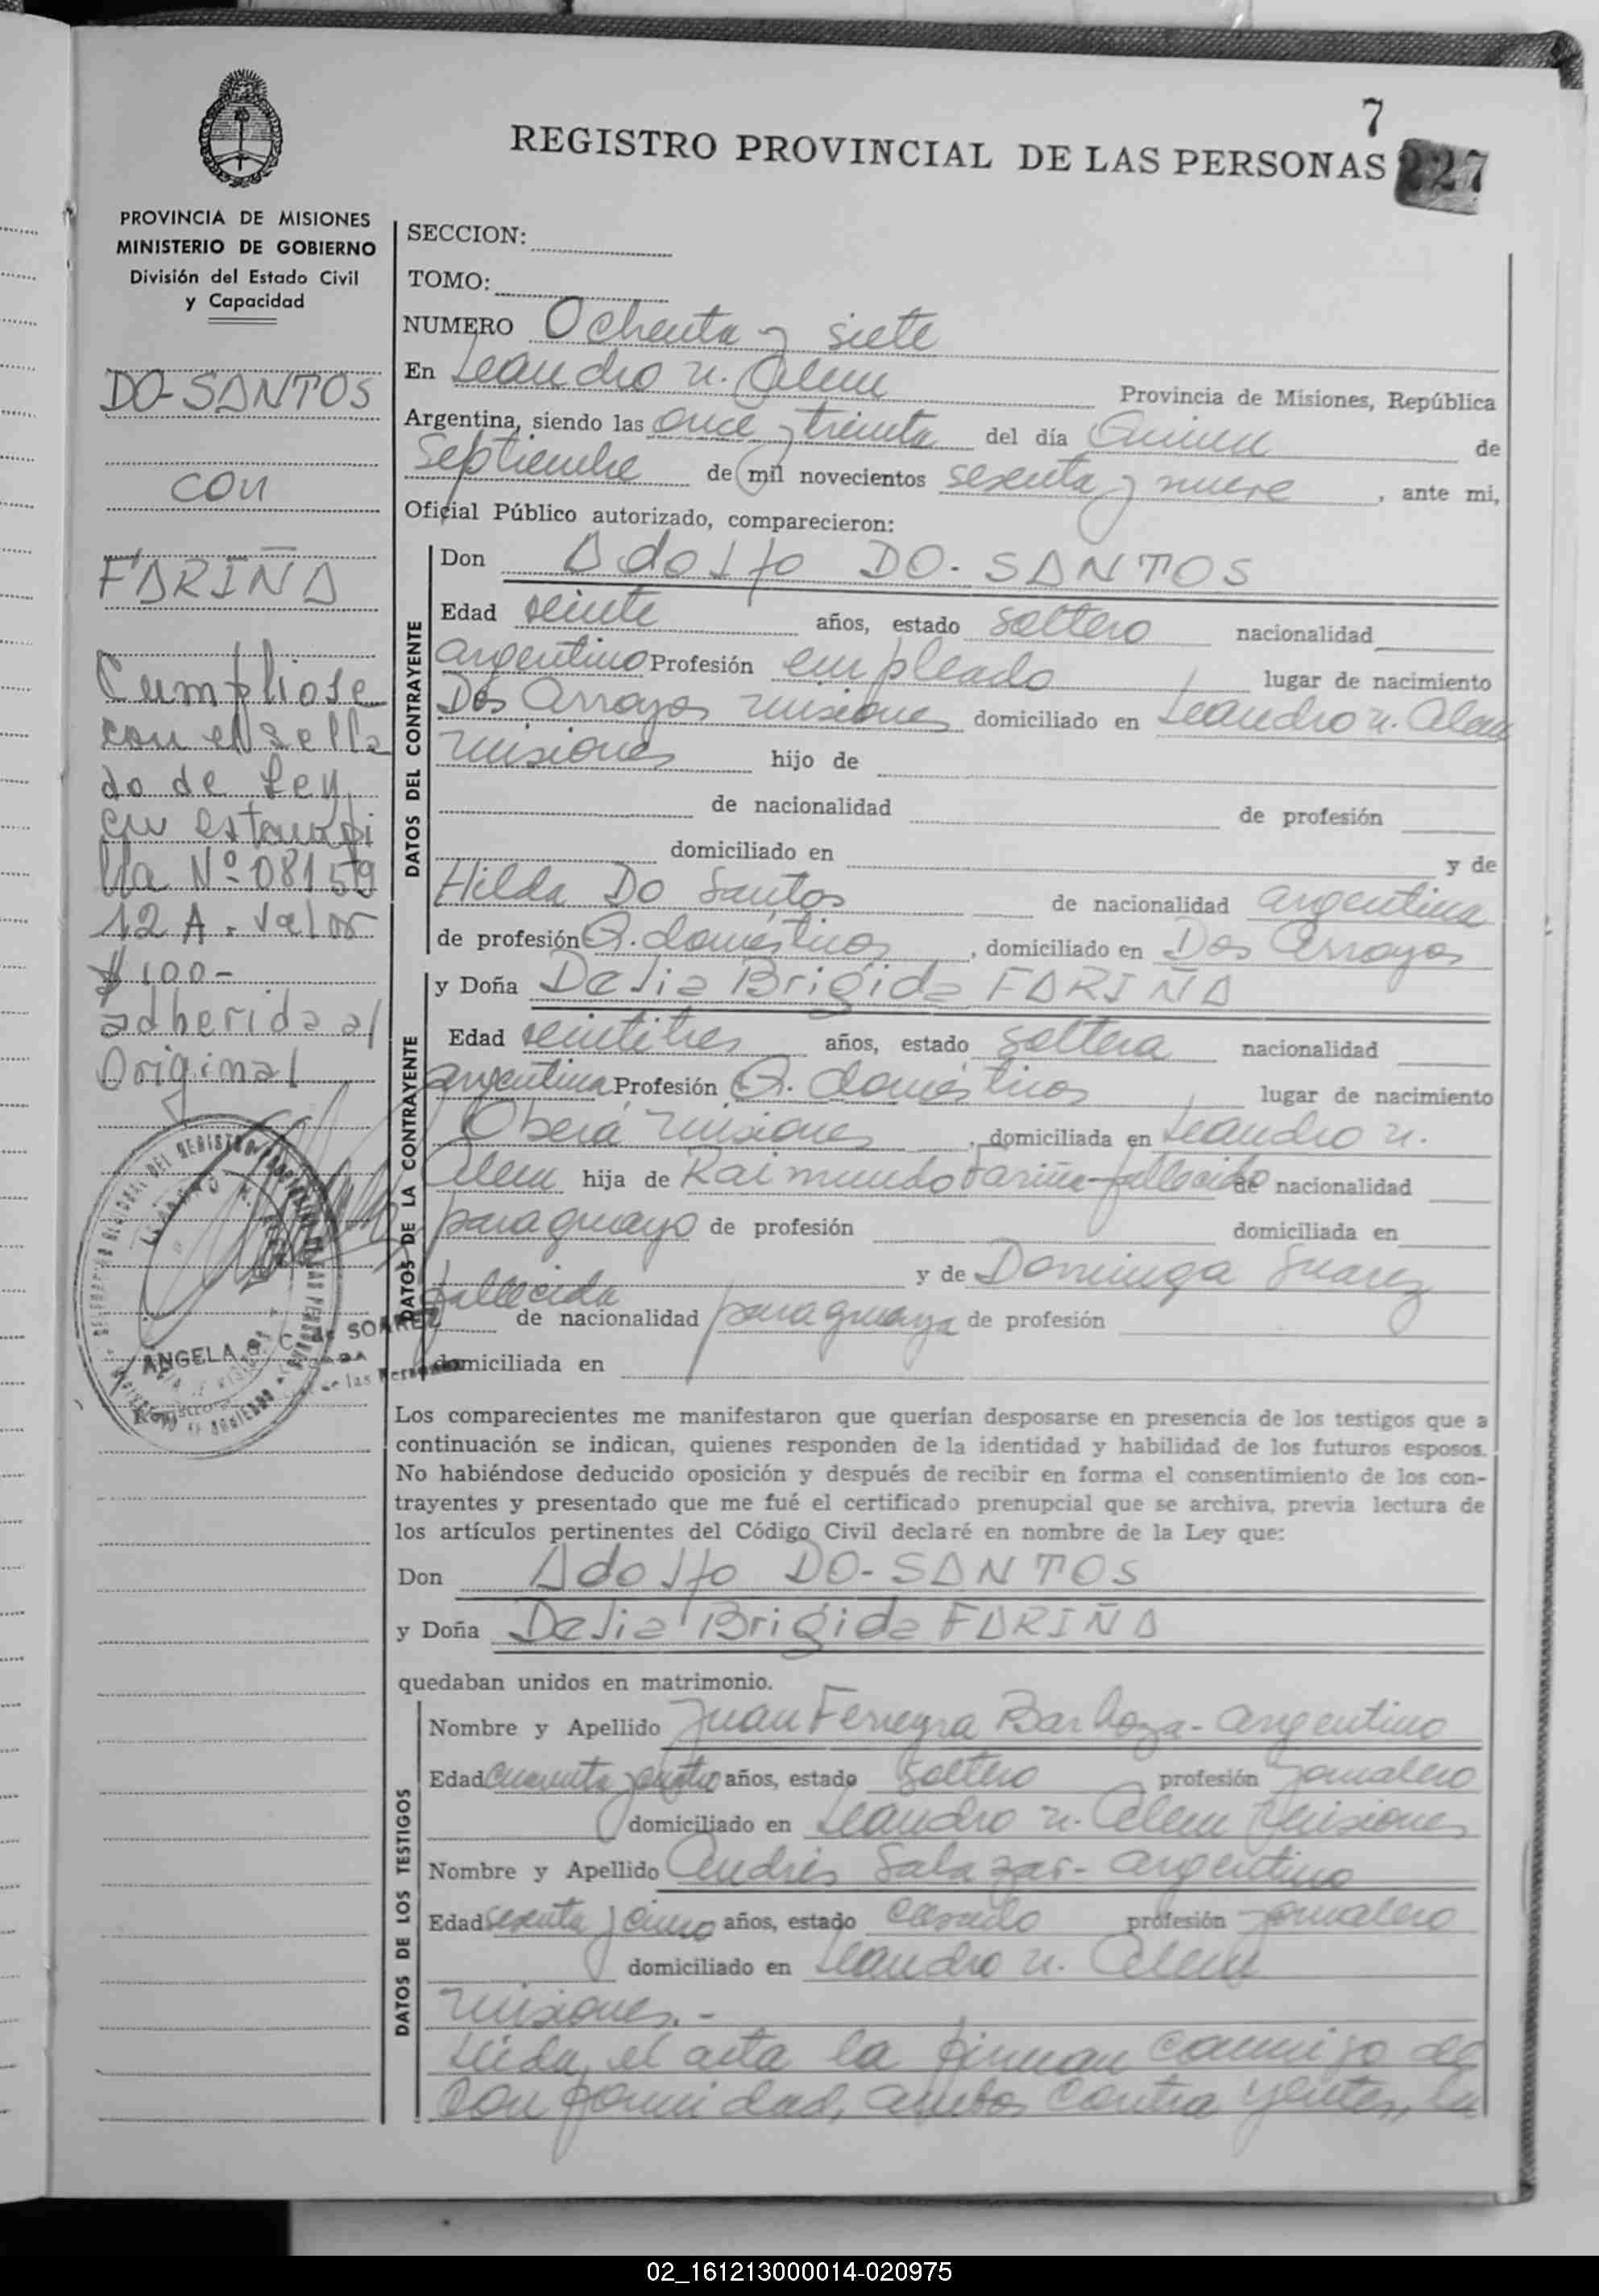 7
REGISTRO PROVINCIAL DE LAS PERSONAS 227
PROVINCIA DE MISIONES
MINISTERIO DE GOBIERNO
División del Estado Civil
y Capacidad
DO-SANTOS
con
FARIÑA
Cumpliose
con el sella
do de Ley
en estampi
lla Nº 08159
12 A. valor
$ 100-
adherida al
Original
ANGELA C. de SOAREZ
SECCION:
TOMO:
NUMERO Ochenta y siete
En Leandro N. Alem Provincia de Misiones, República
Argentina, siendo las once y treinta del día Quince de
Septiembre de mil novecientos sesenta y nueve, ante mi,
Oficial Público autorizado, comparecieron:
DATOS DEL CONTRAYENTE
Don Adolfo DO-SANTOS
Edad veinte años, estado soltero nacionalidad
argentino Profesión empleado lugar de nacimiento
Dos Arroyos Misiones domiciliado en Leandro N. Alem
Misiones hijo de
de nacionalidad de profesión
domiciliado en y de
Hilda Do Santos de nacionalidad argentina
de profesión Q. domésticos, domiciliado en Dos Arroyos
DATOS DE LA CONTRAYENTE
y Doña Delia Brigida FARIÑA
Edad veintitres años, estado soltera nacionalidad
argentina Profesión Q. domésticos lugar de nacimiento
Oberá Misiones, domiciliada en Leandro N.
Alem hija de Raimundo Fariña-fallecido de nacionalidad
paraguayo de profesión domiciliada en
y de Dominga Suarez
fallecida de nacionalidad paraguaya de profesión
domiciliada en
Los comparecientes me manifestaron que querían desposarse en presencia de los testigos que a
continuación se indican, quienes responden de la identidad y habilidad de los futuros esposos.
No habiéndose deducido oposición y después de recibir en forma el consentimiento de los con-
trayentes y presentado que me fué el certificado prenupcial que se archiva, previa lectura de
los artículos pertinentes del Código Civil declaré en nombre de la Ley que:
Don Adolfo DO-SANTOS
y Doña Delia Brigida FARIÑA
quedaban unidos en matrimonio.
DATOS DE LOS TESTIGOS
Nombre y Apellido Juan Ferreyra Barboza-argentino
Edad cuarenta y cuatro años, estado soltero profesión jornalero
domiciliado en Leandro N. Alem Misiones
Nombre y Apellido Andrés Salazar-argentino
Edad sesenta y cinco años, estado casado profesión jornalero
domiciliado en Leandro N. Alem
Misiones.-
Leída, el acta la firman conmigo de
conformidad, ambos contrayentes, la
02_161213000014-020975